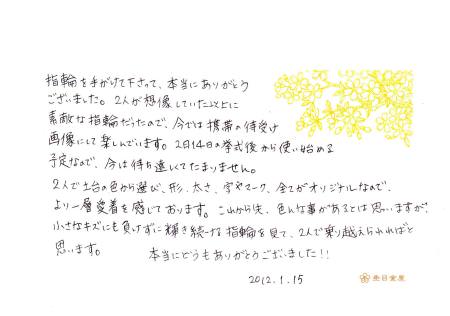 指輪を手がけて下さって、本当にありがとう
ございました。2人が想像していた以上に
素敵な指輪だったので、今では携帯の待受け
画像にして楽しんでいます。2月14日の挙式後から使い始める
予定なので、今は待ち遠しくてたまりません。
2人で土台の色から選び、形、太さ、字やマーク、全てがオリジナルなので、
より一層愛着を感じております。これから先、色んな事があるとは思いますが、
小さなキズにも負けずに輝き続ける指輪を見て、2人で乗り越えられればと
思います。 本当にどうもありがとうございました!!
2012.1.15
杢目金屋